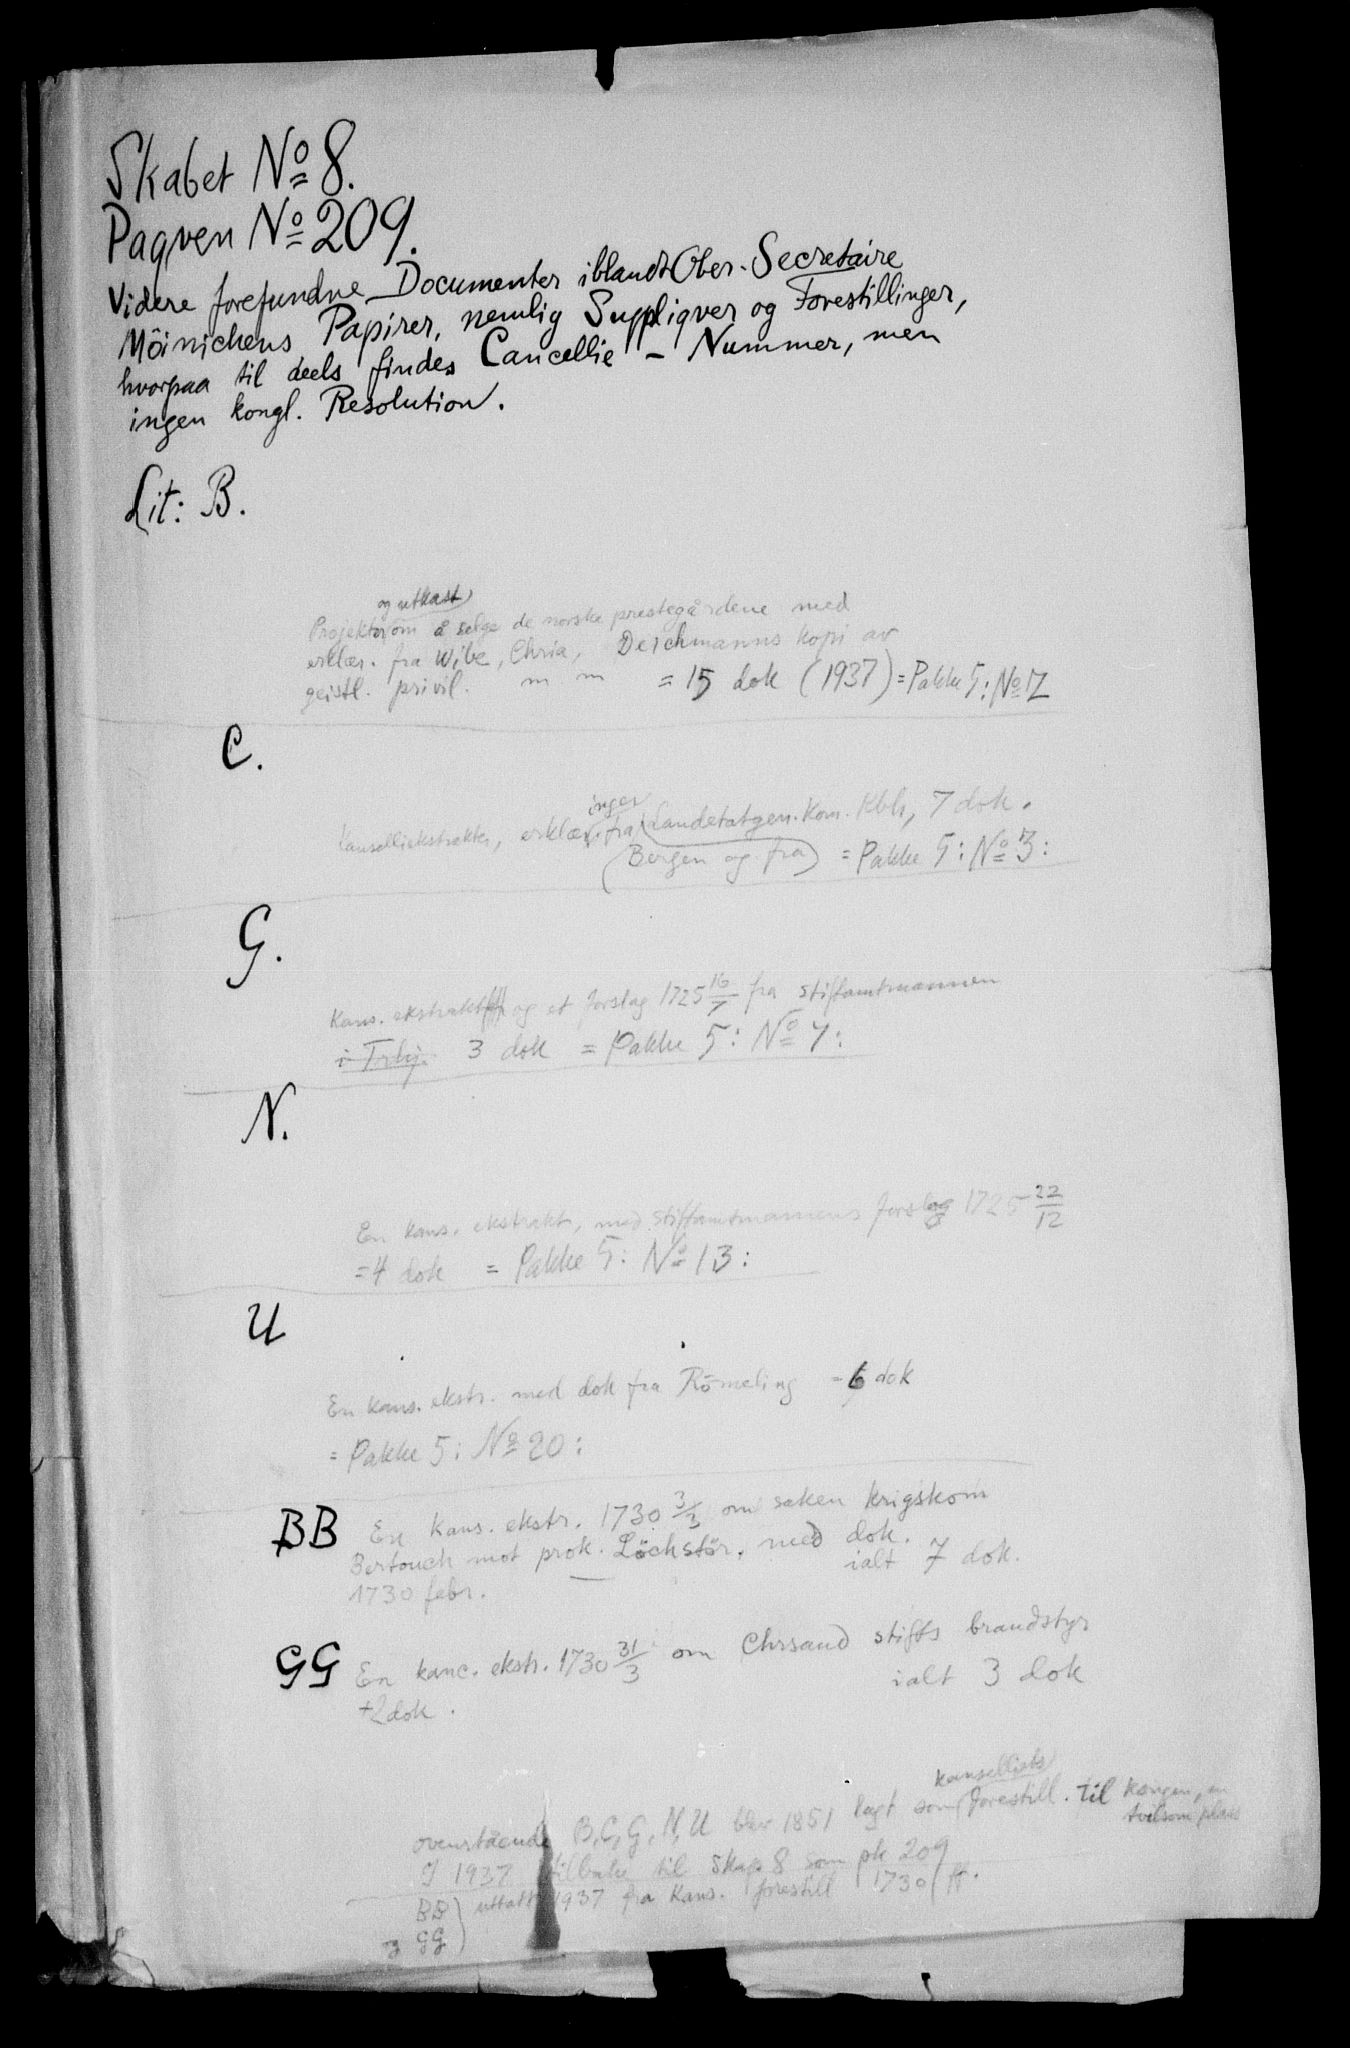 Skabet No 8.
Paqven No 209.
Videre forefundne Documenter iblandt Ober-Secretaire
Möinichens Papirer, nemlig Suppliqver og Forestillinger,
hvorpaa til deels findes Cancellie - Nummer, men
ingen kongl. Resolution.
Lit: B.
og utkast
Projekter om å selge de norske prestegårdene med
erklær. fra Wibe, Chria, Deichmanns kopi av
geistl. privil. m m = 15 dok (1937) = Pakke 5: No
C.
inger
Kanselliekstrakter, erklær. fra Landetatgen. Kom. Kbh, 7 dok.
(Bergen og fra) = Pakke 5: No 3:
G.
Kans. ekstrakt og et forslag 1725 16/7 fra stiftamtmannen
i Trhj. 3 dok = Pakke 5: No 7:
N.
En kans. ekstrakt, med stiftamtmannens forslag 1725 22/12
= 4 dok = Pakke 5: No 13:
U
En kans. ekstr. med dok fra Römeling = 6 dok
= Pakke 5: No 20:
BB En kans. ekstr. 1730 3/3 om saken krigskom
Bertouch mot prok. Löchstör. med dok.
1730 febr. ialt 7 dok.
GG En kanc. ekstr. 1730 31/3 om Chrsand stifts brandstyr
+2 dok. ialt 3 dok
kanselliets
ovenstående B, C, G, N, U blev 1851 lagt som forestill. til kongen, en
tvilsom plass
I 1937 tilbake til Skap 8 som pk 209
BB uttatt 1937 fra Kans. forestill 1730
GG